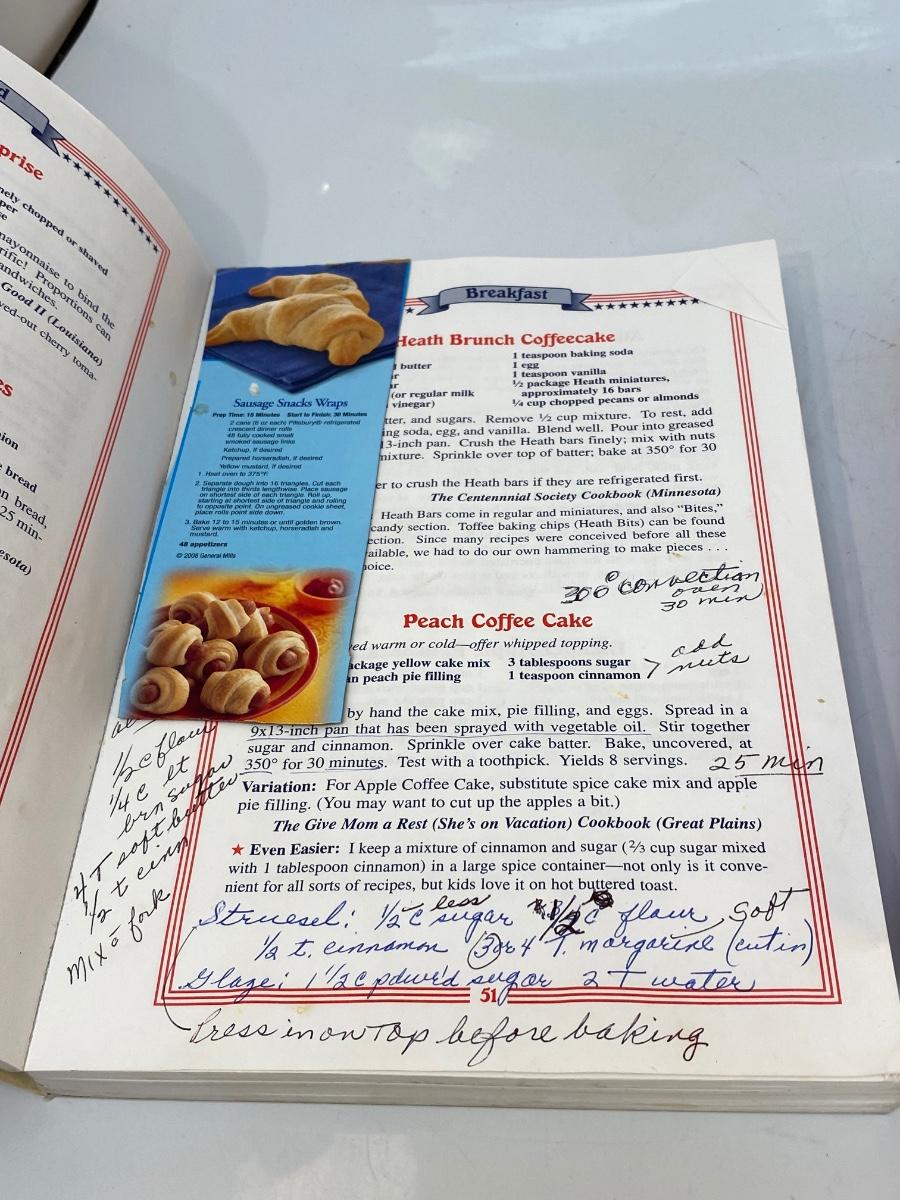 d
prise
nely chopped or shaved
per
se
mayonnaise to bind the
rific! Proportions can
andwiches.
Good II (Louisiana)
ved-out cherry toma-
es
nion
e bread
n bread,
25 min-
esota)
Breakfast
Heath Brunch Coffeecake
butter
ar
ar
(or regular milk
vinegar)
1 teaspoon baking soda
1 egg
1 teaspoon vanilla
½ package Heath miniatures,
approximately 16 bars
¼ cup chopped pecans or almonds
tter, and sugars. Remove ½ cup mixture. To rest, add
ing soda, egg, and vanilla. Blend well. Pour into greased
13-inch pan. Crush the Heath bars finely; mix with nuts
mixture. Sprinkle over top of batter; bake at 350° for 30
er to crush the Heath bars if they are refrigerated first.
The Centennnial Society Cookbook (Minnesota)
Heath Bars come in regular and miniatures, and also “Bites,”
candy section. Toffee baking chips (Heath Bits) can be found
ection. Since many recipes were conceived before all these
ailable, we had to do our own hammering to make pieces . . .
hoice.
Sausage Snacks Wraps
Prep Time: 15 Minutes Start to Finish: 30 Minutes
2 cans (8 oz each) Pillsbury® refrigerated
crescent dinner rolls
48 fully cooked small
smoked sausage links
Ketchup, if desired
Prepared horseradish, if desired
Yellow mustard, if desired
1. Heat oven to 375°F.
2. Separate dough into 16 triangles. Cut each
triangle into thirds lengthwise. Place sausage
on shortest side of each triangle. Roll up,
starting at shortest side of triangle and rolling
to opposite point. On ungreased cookie sheet,
place rolls point side down.
3. Bake 12 to 15 minutes or until golden brown.
Serve warm with ketchup, horseradish and
mustard.
48 appetizers
© 2008 General Mills
300° convection
oven
30 min
Peach Coffee Cake
ed warm or cold—offer whipped topping.
ackage yellow cake mix
an peach pie filling
3 tablespoons sugar
1 teaspoon cinnamon
add
nuts
by hand the cake mix, pie filling, and eggs. Spread in a
9x13-inch pan that has been sprayed with vegetable oil. Stir together
sugar and cinnamon. Sprinkle over cake batter. Bake, uncovered, at
350° for 30 minutes. Test with a toothpick. Yields 8 servings.
25 min
Variation: For Apple Coffee Cake, substitute spice cake mix and apple
pie filling. (You may want to cut up the apples a bit.)
The Give Mom a Rest (She’s on Vacation) Cookbook (Great Plains)
★ Even Easier: I keep a mixture of cinnamon and sugar (2/3 cup sugar mixed
with 1 tablespoon cinnamon) in a large spice container—not only is it conve-
nient for all sorts of recipes, but kids love it on hot buttered toast.
1/2 c flour
1/4 c lt
brn sugar
4 T soft butter
1/2 t cinn
mix c̄ fork
less
Struesel: 1/2 c sugar 1/2 c flour, soft
1/2 t. cinnamon 3 or 4 T. margarine (cut in)
Glaze: 1 1/2 c powd'd sugar 2 T water
51
Press in on top before baking